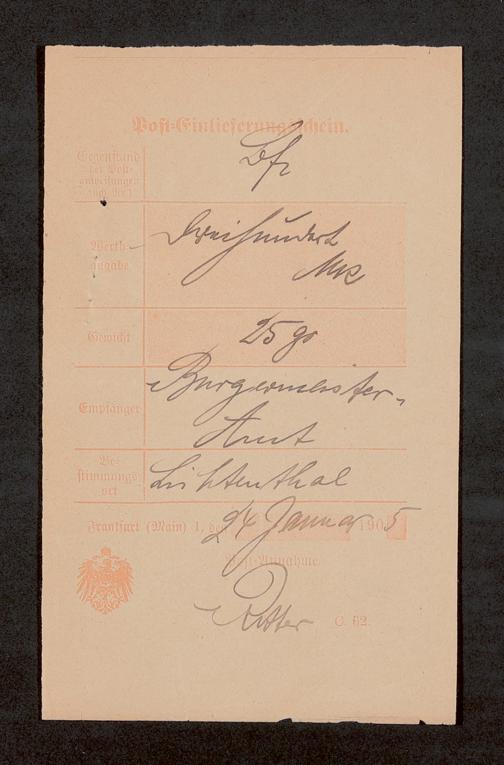 Post-Einlieferungsschein.
Gegenstand
Bfr
Werth-
angabe
Dreihundert
Mk
Gewicht
25 gr
Empfänger
Bürgermeister-
Amt
Be-
stimmungs-
ort
Lichtenthal
Frankfurt (Main) 1, den 24 Januar 1905
Post-Annahme.
Ritter
C. 62.